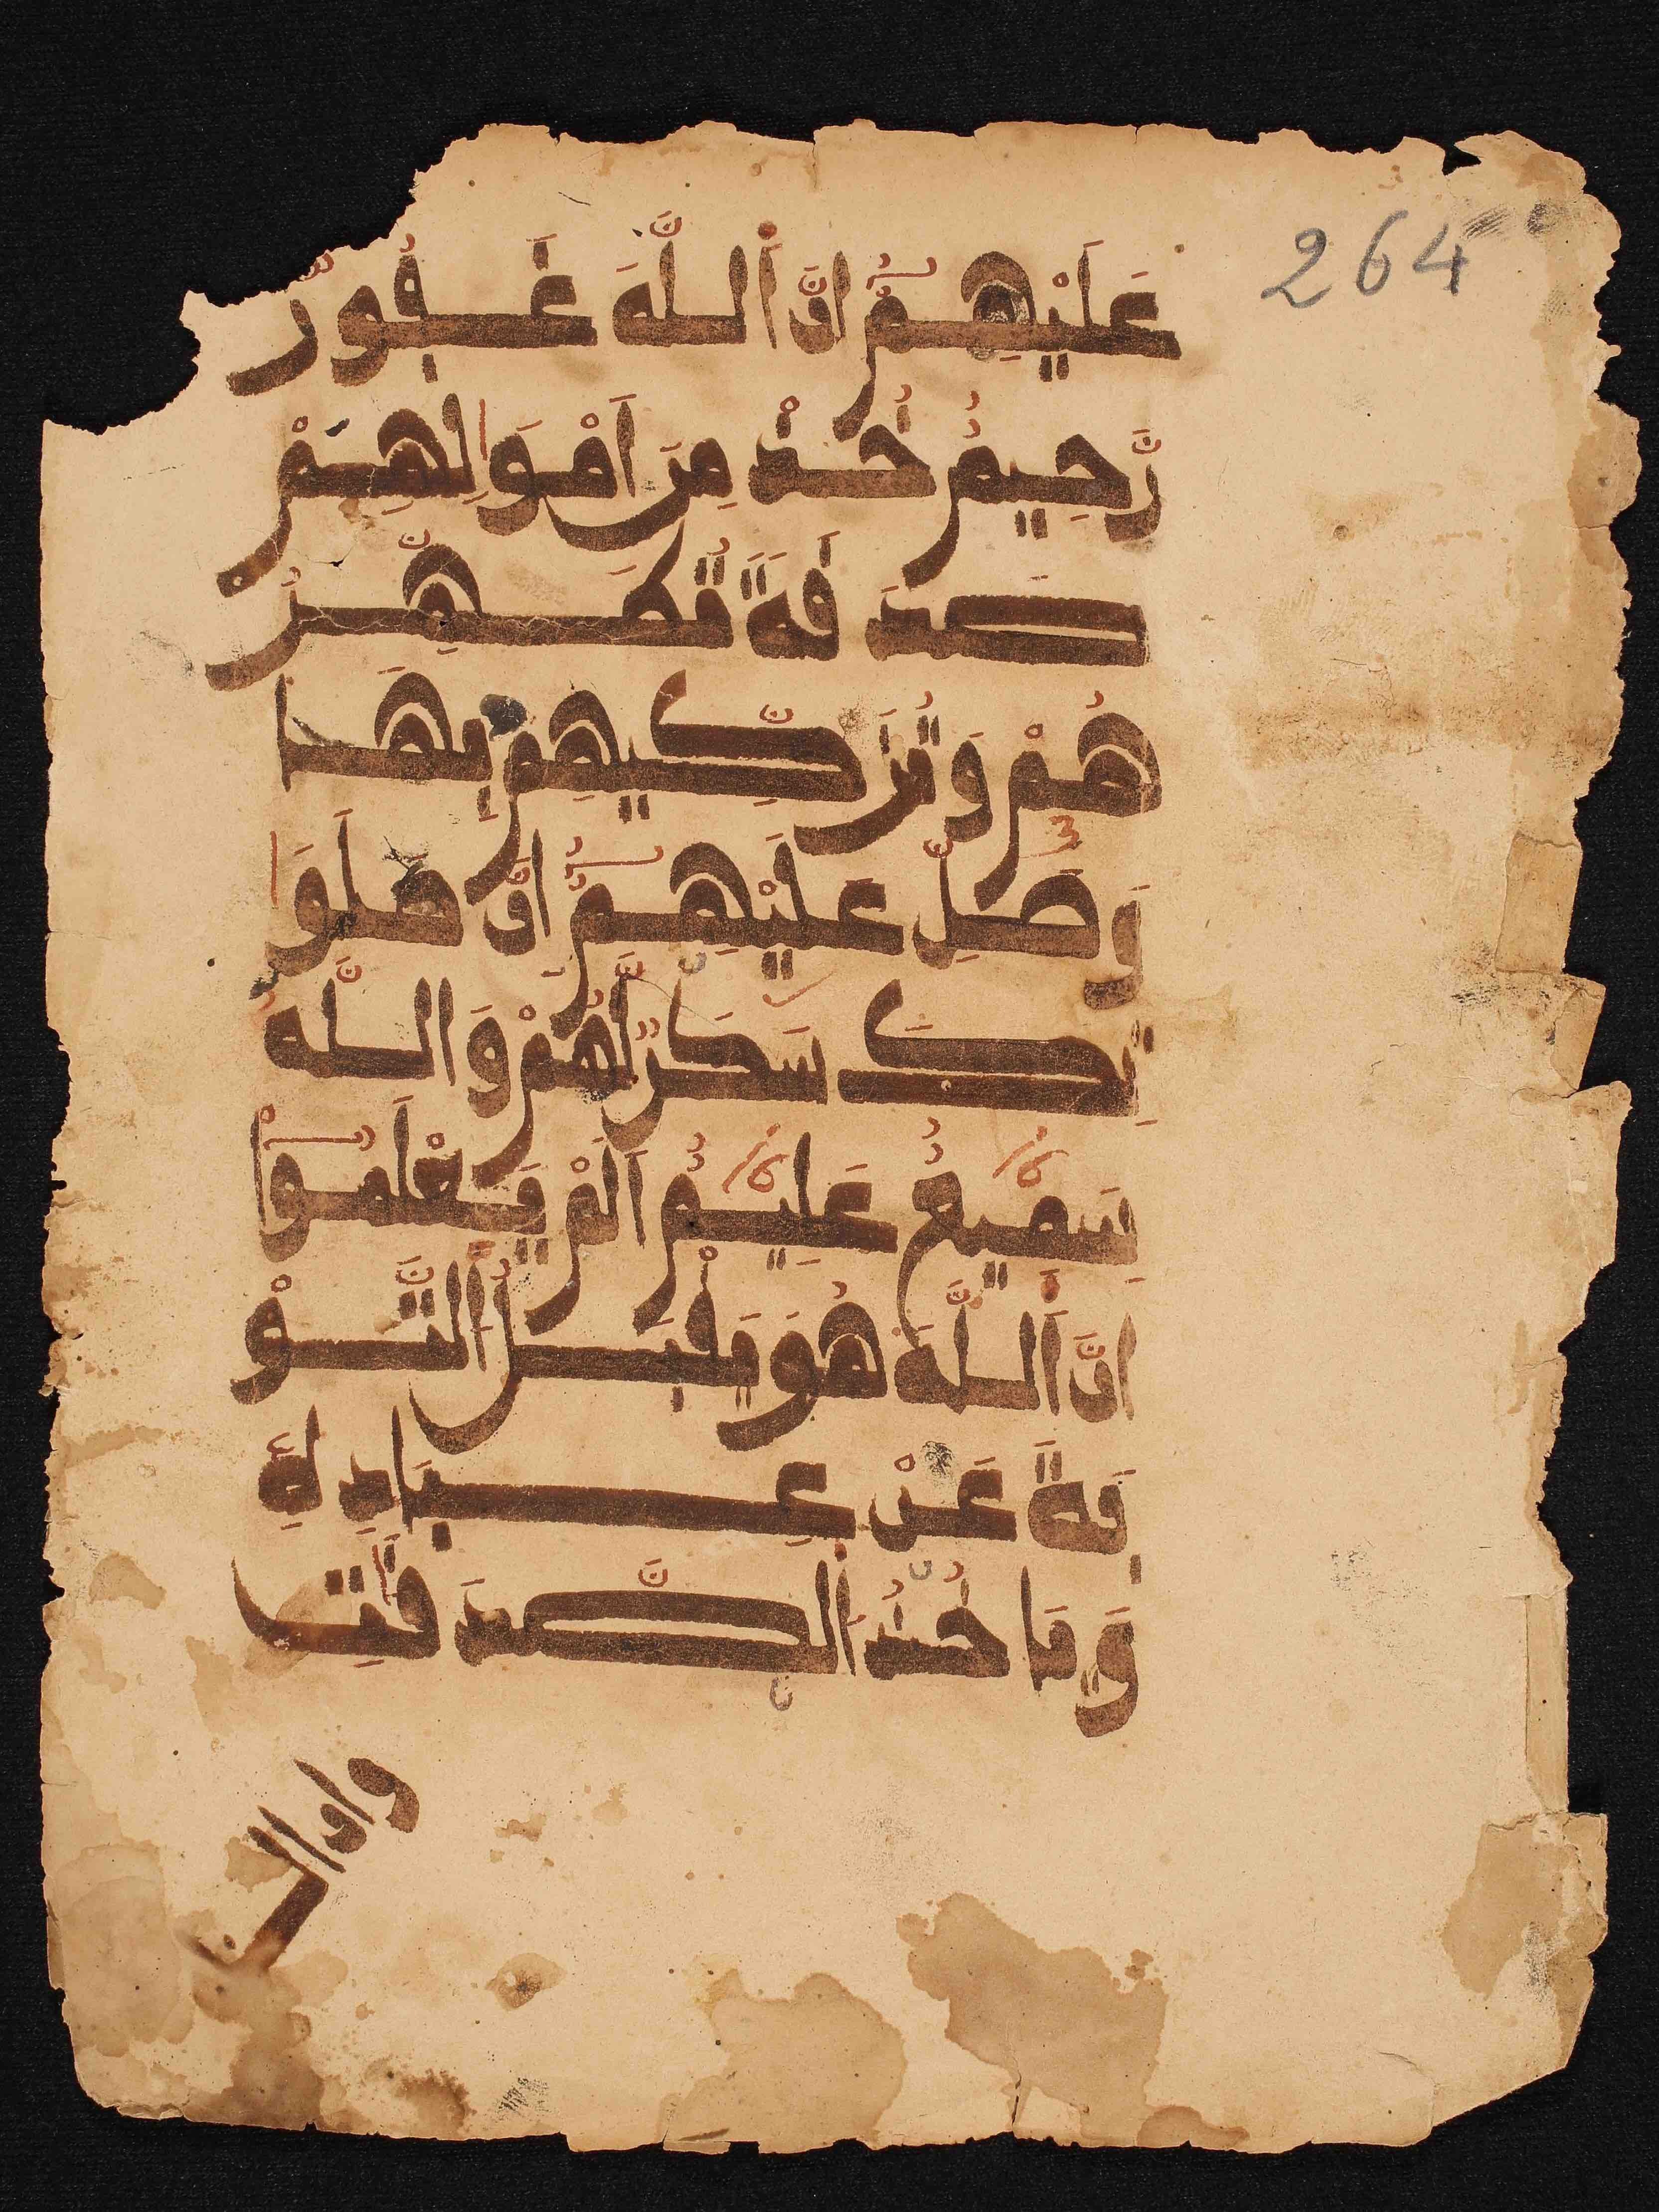 264
عَلَيْهِمُ إنَّ اَللَّهَ غَفُورٌ
رَّحِيمٌ خُذْ مِنَ اَمْوَالِهِمْ
صَدَ قَةً تُطَهِّرُ
هُمْ وَتُزَ كِّيهِمْ بِهَا
وَصَلِّ عَلَيْهِمُ إنَّ صَلَوَا
تِكَ سَكَنٌ لَّهُمْ وَاللَّهُ
سَمِيعٌ عَلِيمٌ اَلَمْ يَعْلَمُوا
إنَّ اَللَّهَ هُوَ يَقْبَلُ اَلتَّوْ
بَةَ عَنْ عِبَادِ هِ
وَيَا خُذُ اَلصَّدَ قَٰتِ
وان الـ